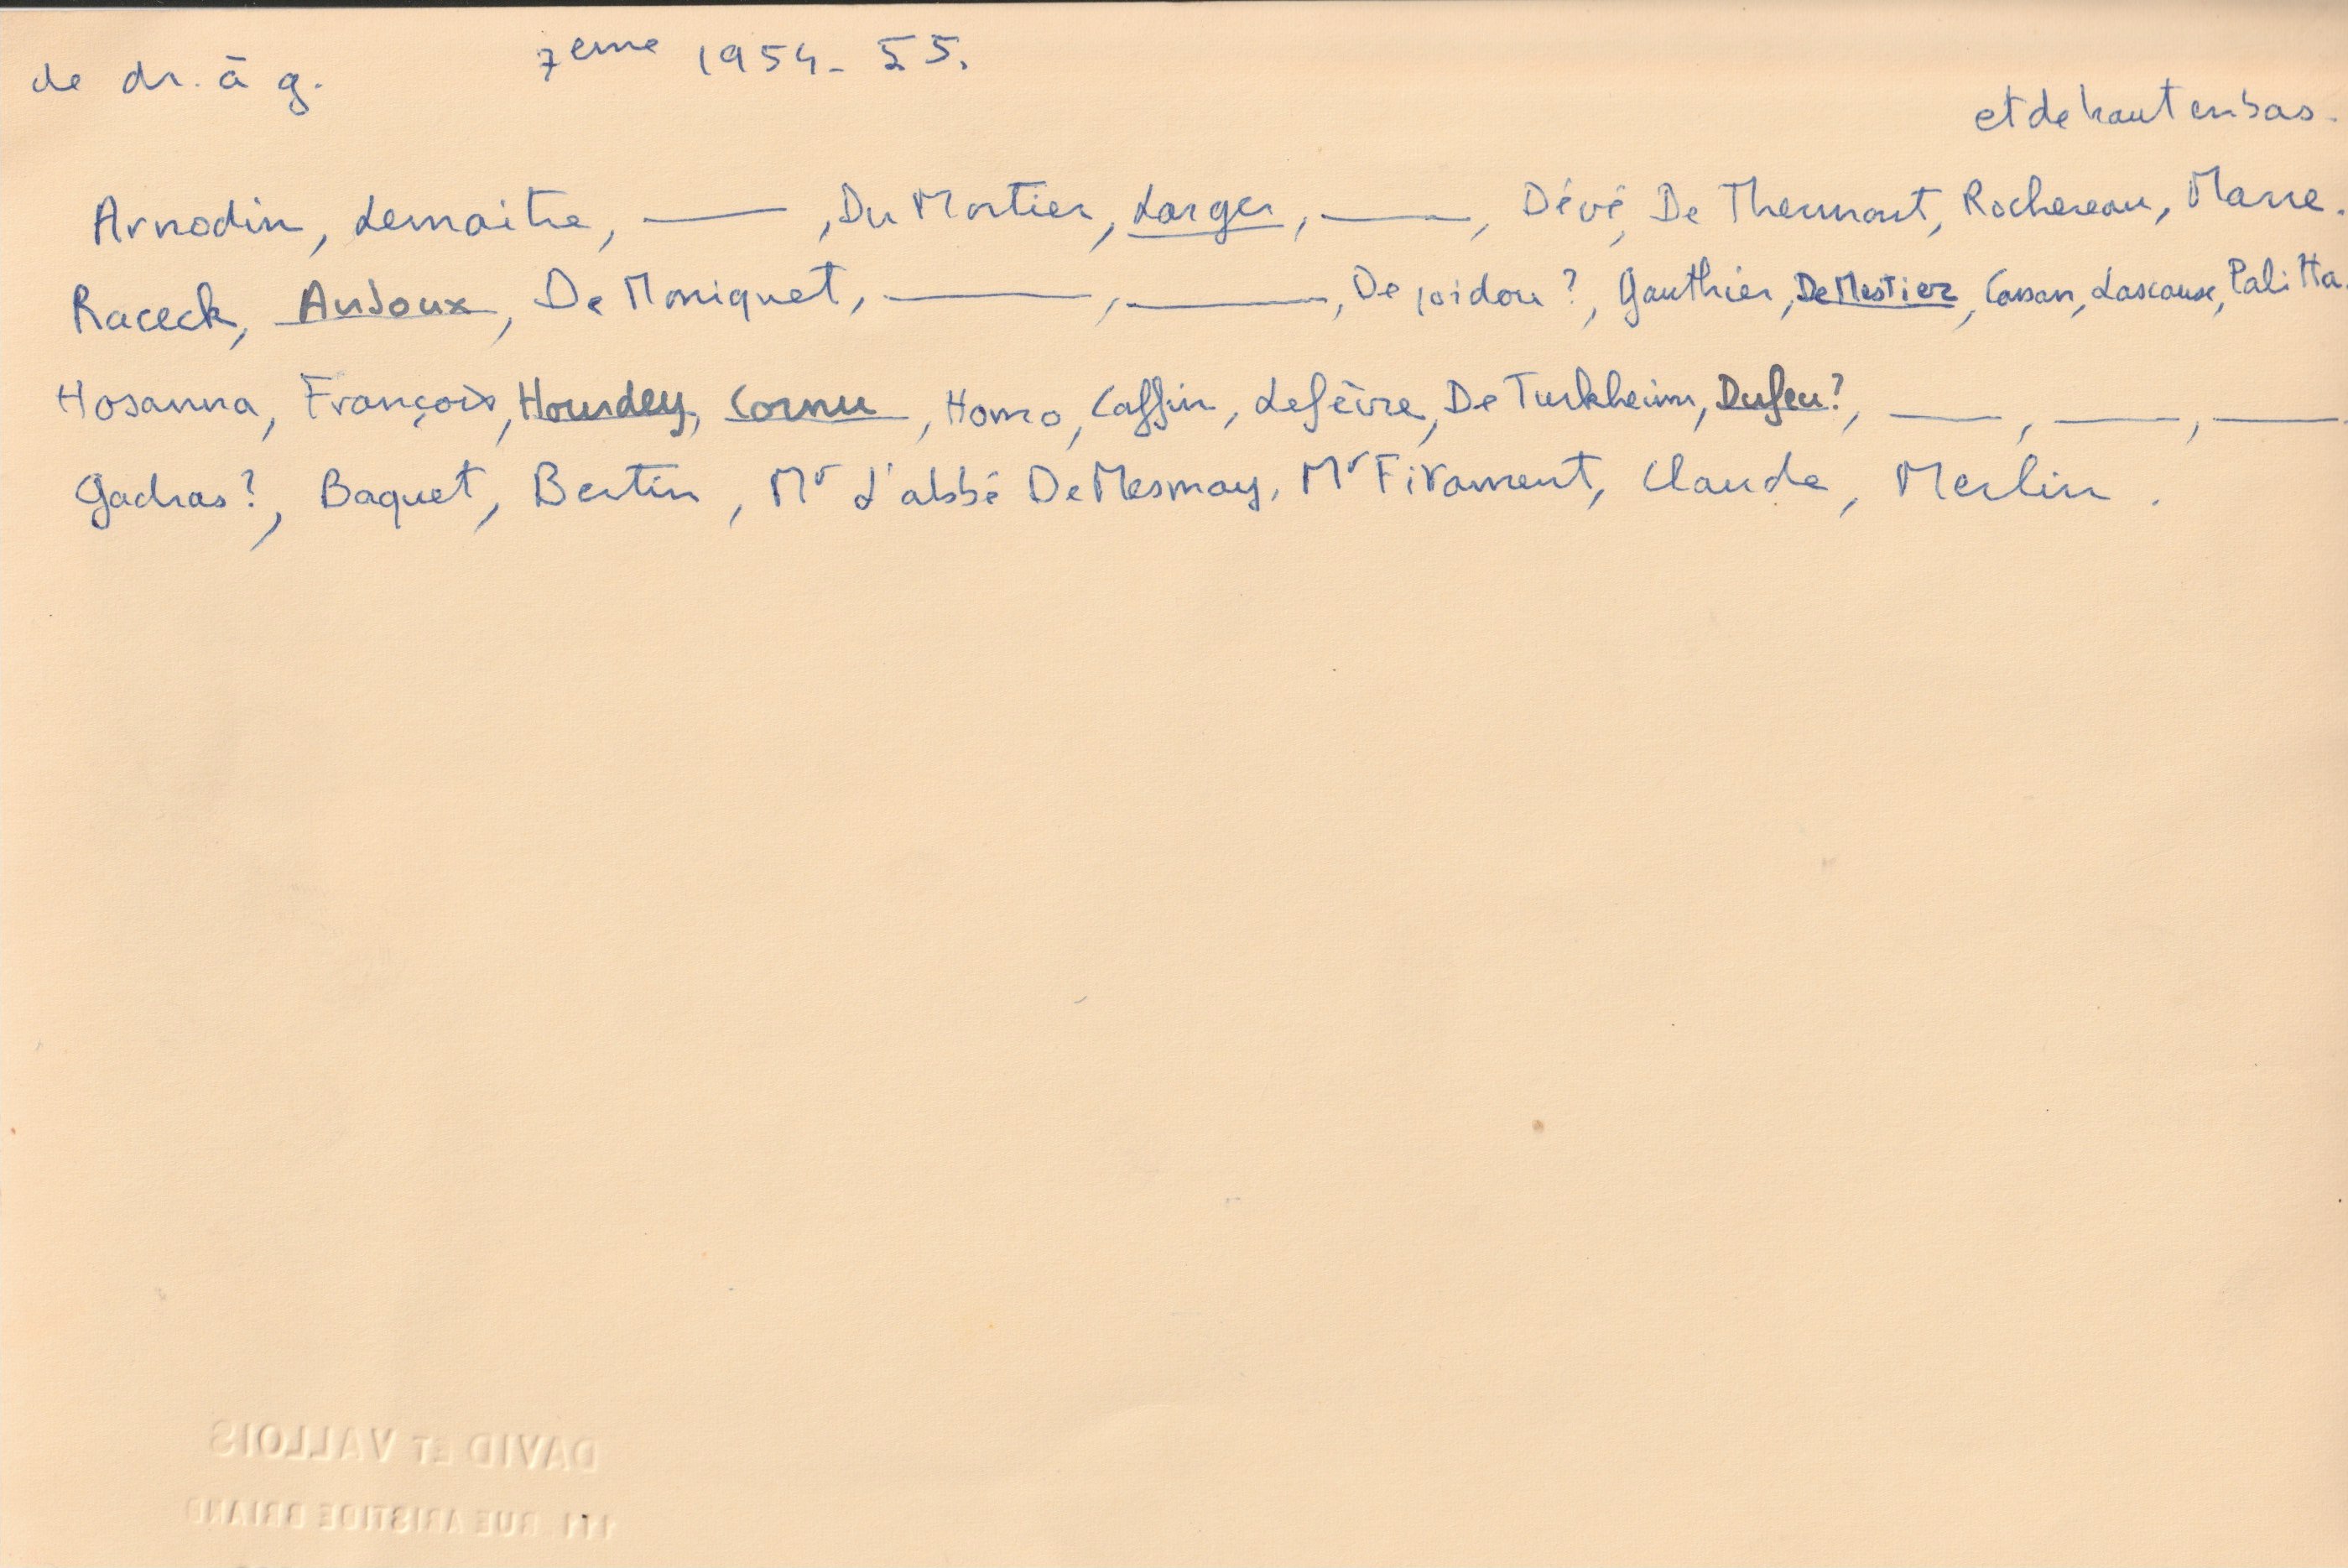 7eme 1954-55.
de dr. à g.
et de haut en bas.
Arnodin, Lemaitre, ____, Du Mortier, Larger, ____, Dévé, De Thermont, Rochereau, Marre.
Raceck, Anjoux, De Moniquet, ____, ____, De ?, Gauthier, De Mestier, Cassan, Lascause, Palitta.
Hosanna, François, Hourdey, Cornu, Homo, Caffin, Lefèvre, De Turkheim, Dufeu?, ____, ____, ____
Gadras?, Baquet, Bertin, Mr l'abbé De Mesmay, Mr Firament, Claude, Merlin.
DAVID ET VALLOIS
111 RUE ARISTIDE BRIAND